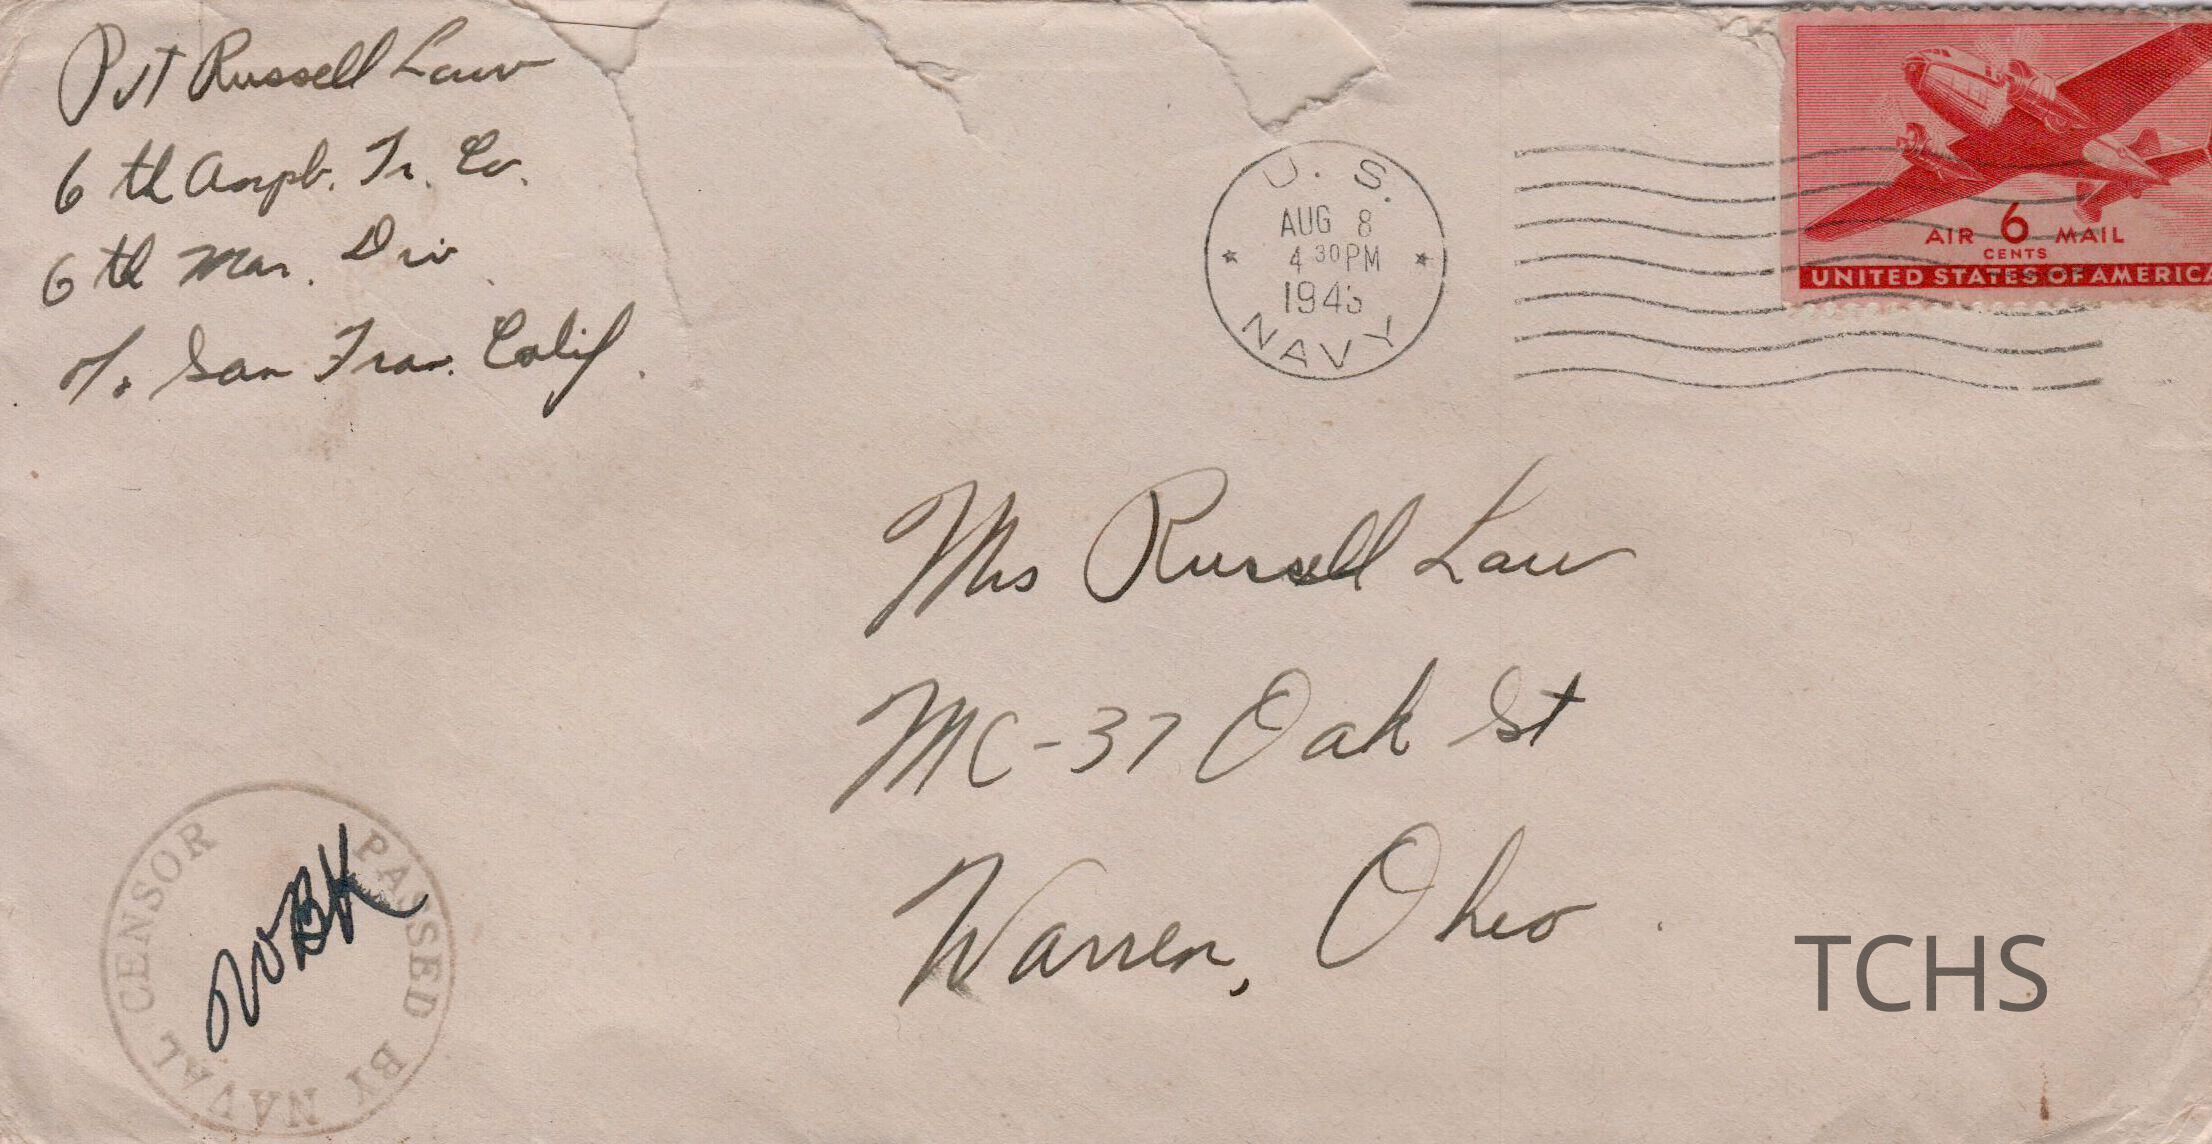 Pvt Russell Law
6th Amph. Tr. Co.
6th Mar. Div.
℅ San Fran. Calif.
U. S.
AUG 8
4 30 PM
1945
NAVY
AIR 6 MAIL
CENTS
UNITED STATES OF AMERICA
Mrs Russell Law
MC-37 Oak St
Warren, Ohio
PASSED BY NAVAL CENSOR
WBK
TCHS